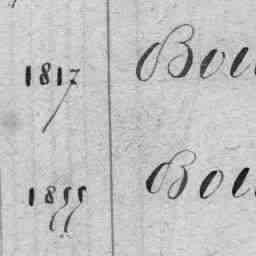 1817 Bou
1855 Bou